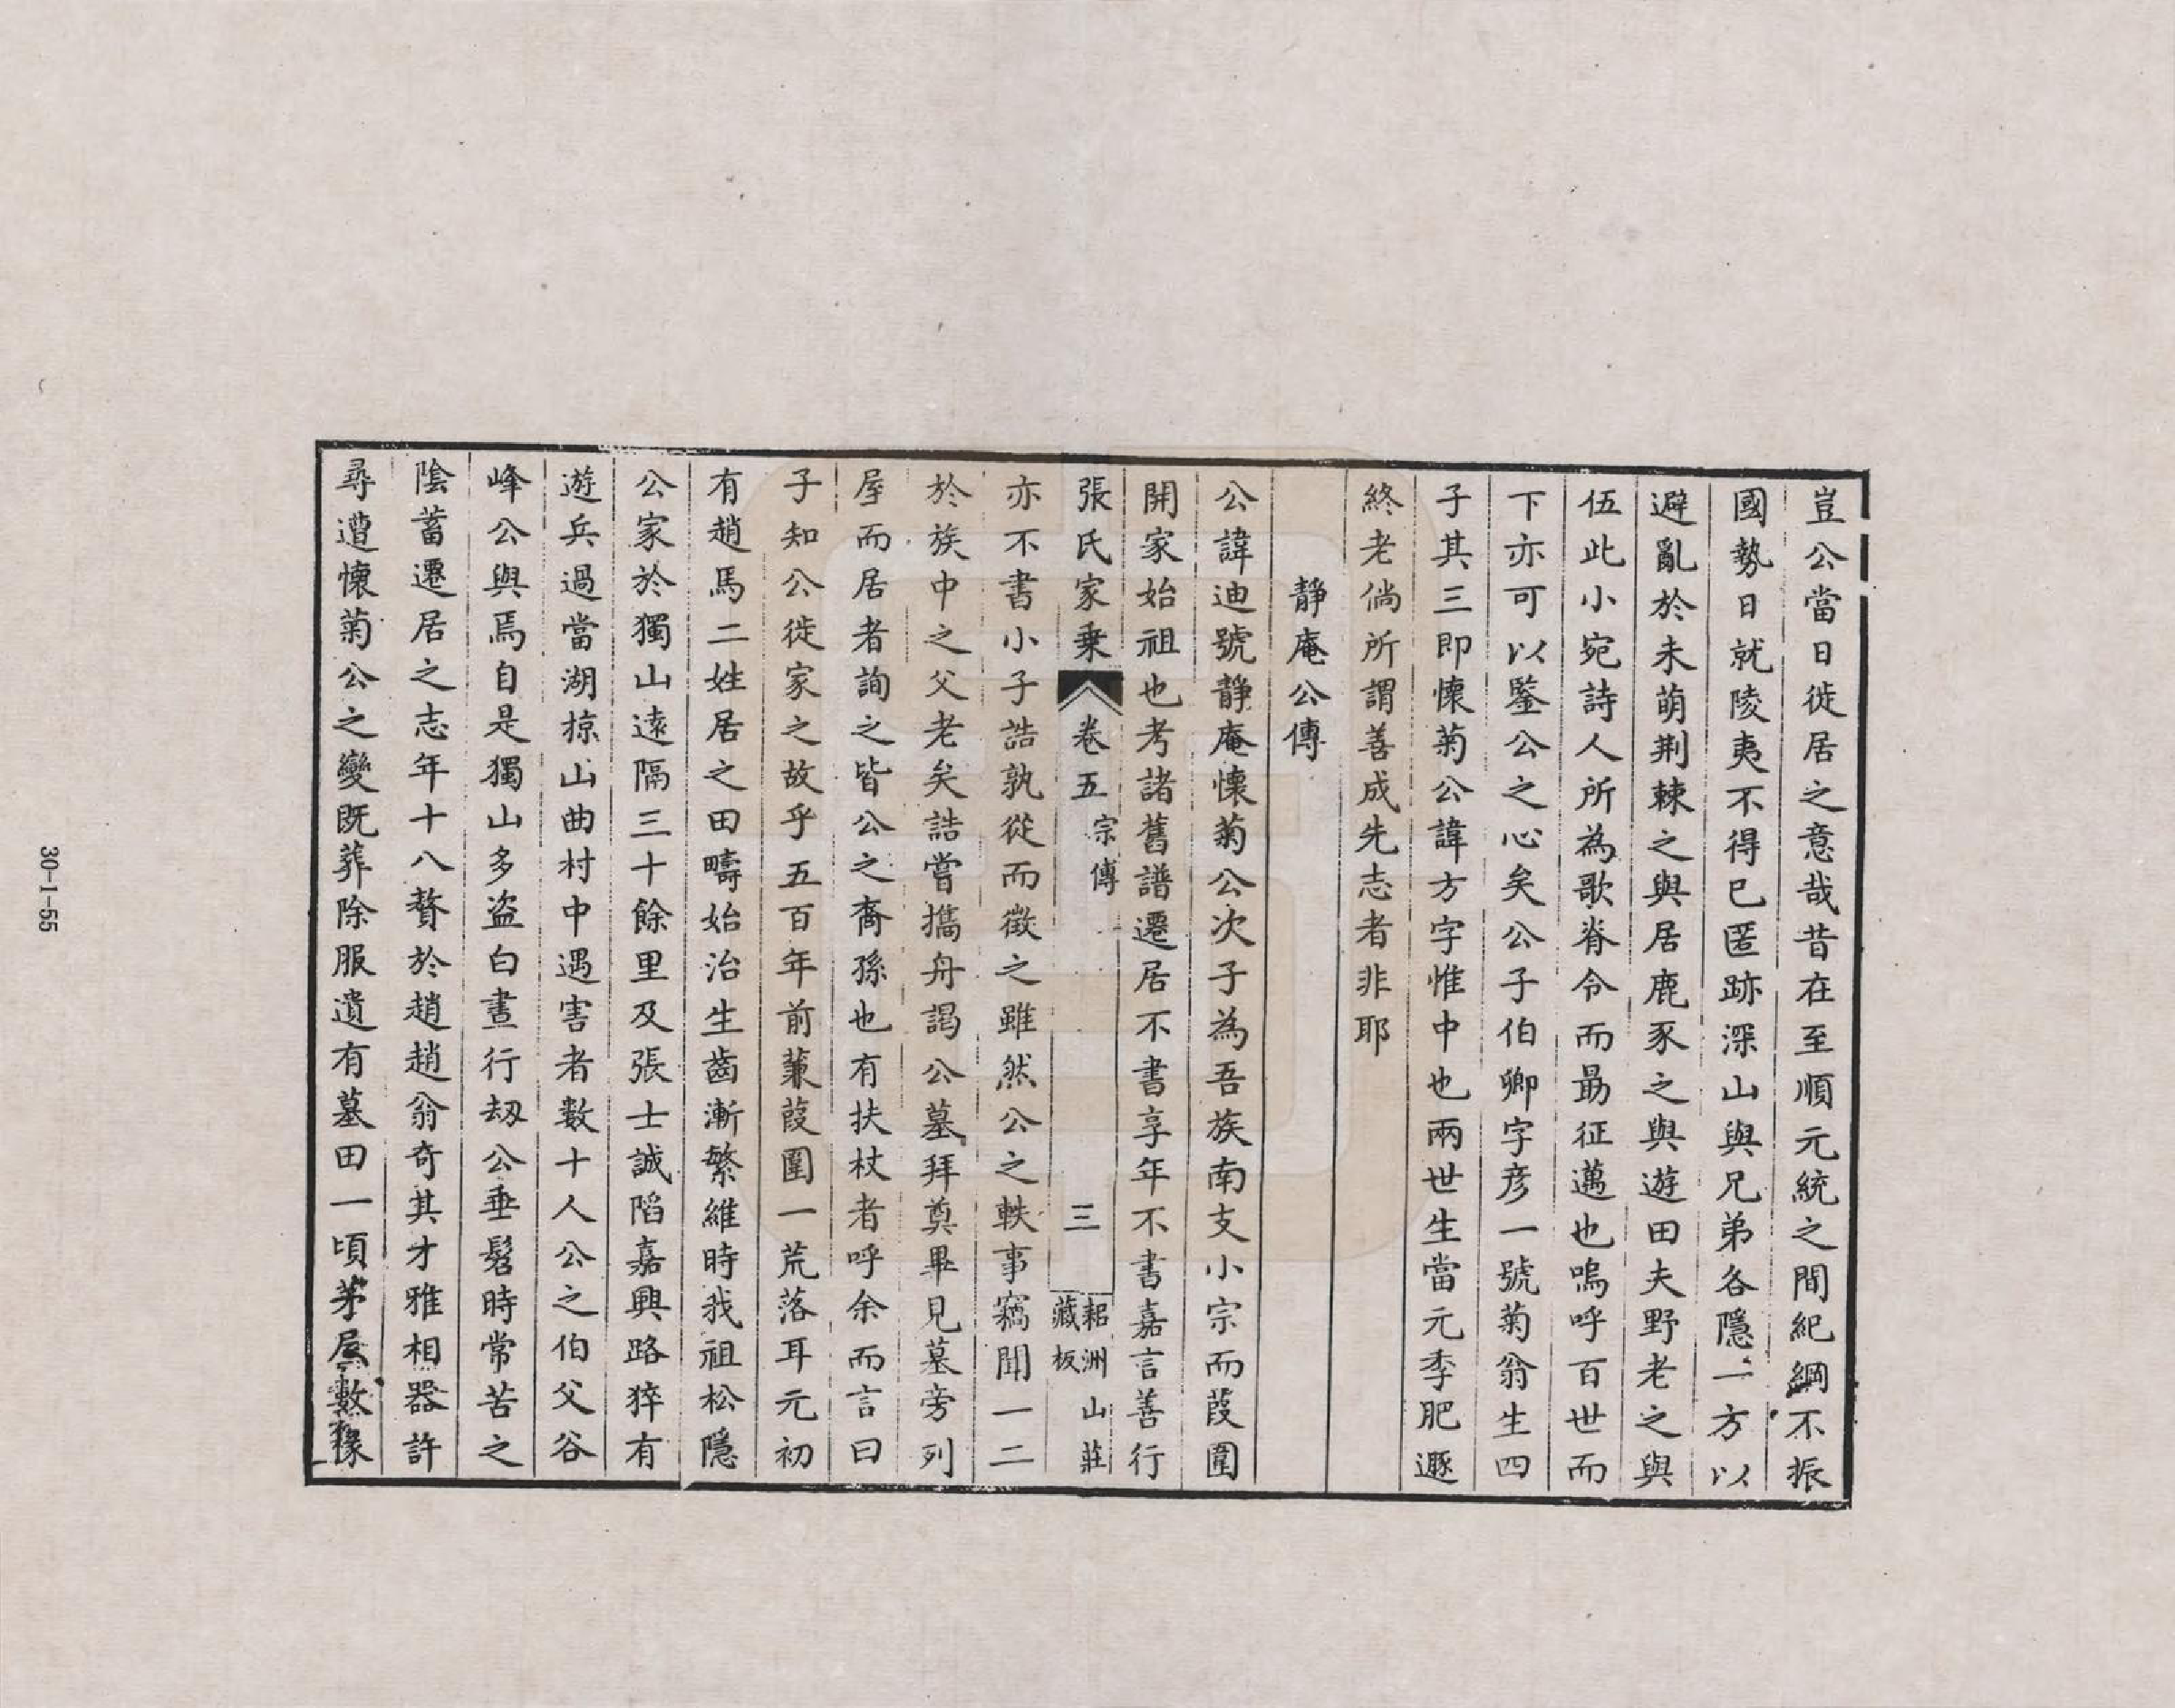 豈公當日徙居之意哉昔在至順元統之間紀綱不振
國勢日就陵夷不得已匿跡深山與兄弟各隱一方以
避亂於未萌荆棘之與居鹿豕之與遊田夫野老之與
伍此小宛詩人所為歌脊令而勗征邁也嗚呼百世而
下亦可以鑒公之心矣公子伯卿字彦一號菊翁生四
子其三即懷菊公諱方字惟中也兩世生當元季肥遯
終老倘所謂善成先志者非耶
靜庵公傳
公諱迪號靜庵懷菊公次子為吾族南支小宗而葭圍
開家始祖也考諸舊譜遷居不書享年不書嘉言善行
張氏家乗
卷五
宗傳
三
耜洲山莊
藏板
亦不書小子誥孰從而徵之雖然公之軼事竊聞一二
於族中之父老矣誥嘗攜舟謁公墓拜奠畢見墓旁列
屋而居者詢之皆公之裔孫也有扶杖者呼余而言曰
子知公徙家之故乎五百年前蒹葭圍一荒落耳元初
有趙馬二姓居之田疇始治生齒漸繁維時我祖松隱
公家於獨山逺隔三十餘里及張士誠陷嘉興路猝有
遊兵過當湖掠山曲村中遇害者數十人公之伯父谷
峰公與焉自是獨山多盗白晝行刼公垂髫時常苦之
隂蓄遷居之志年十八贅於趙趙翁奇其才雅相器許
尋遭懷菊公之變既葬除服遺有墓田一頃茅屋數椽
30-1-55